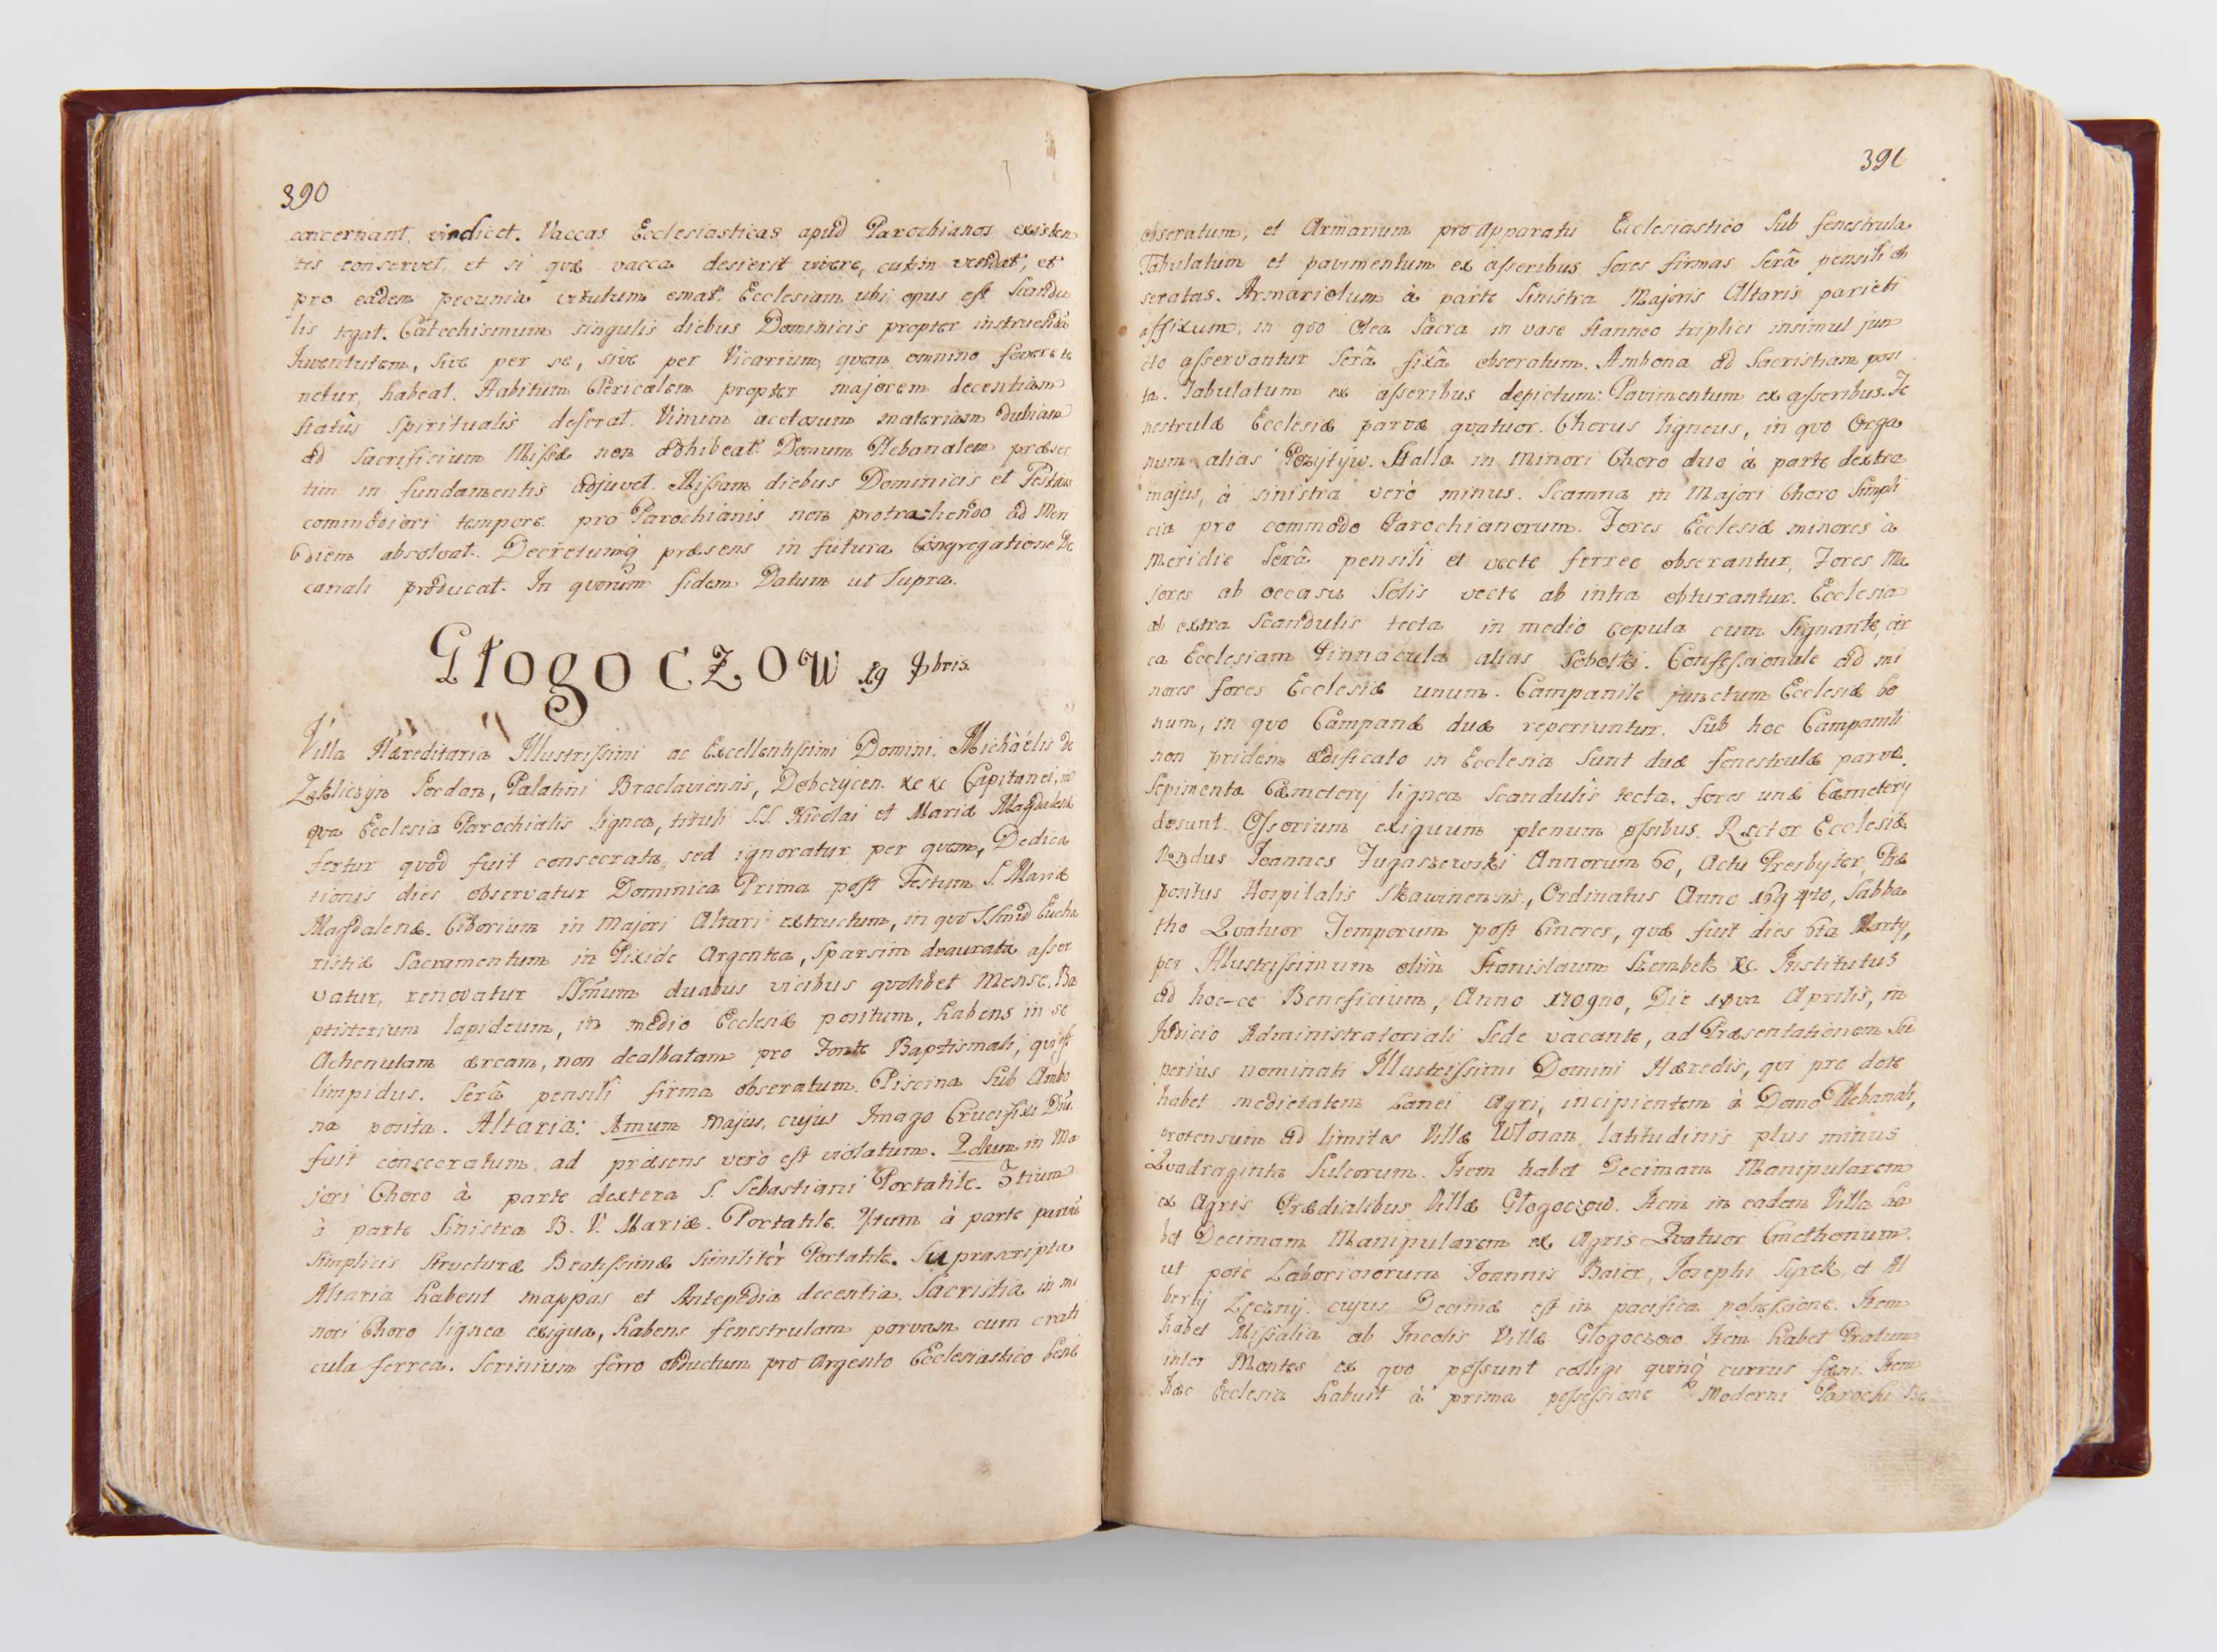 390
concernant, vindicet. Vaccas Ecclesiasticas apud Parochianos existen
tes conservet, et si quæ vacca desierit vivere, cutem vendat, et
pro eadem pecunia vitulum emat. Ecclesiam ubi opus est Scandu
lis tegat. Catechismum singulis diebus Dominicis propter instruendã
Iuventutem, sive per se, sive per Vicarium, quem omnino fovere te
netur, habeat. Habitum Clericalem propter majorem decentiam
statûs Spiritualis deferat. Vinum acetosum materiam dubiam
ad Sacrificium Missæ non adhibeat. Domum Plebanalem præser
tim in fundamentis adjuvet. Missam diebus Dominicis et Festivis
commodiori tempore pro Parochianis non protrahendo ad Meri
diem absolvat. Decretumq præsens in futura Congregatione De
canali producat. In quorum fidem Datum ut Supra.
Głogoczow 19 bris.
Villa Hæreditaria Illustrissimi ac Excellentissimi Domini Michaelis de
Zakliczyn Jordan, Palatini Braclaviensis, Dobczycen. &c &c Capitanei, in
qva Ecclesia Parochialis lignea, tituli S.S. Nicolai et Mariæ Magdalenæ
fertur quod fuit consecrata, sed ignoratur per quem, Dedica
tionis dies observatur Dominica Prima post Festum S. Mariæ
Magdalenæ. Ciborium in Majori Altari extructum, in quo SSmũ Eucha
ristiæ Sacramentum in Pixide Argentea, Sparsim deaurata asser
vatur, renovatur SSmum duabus vicibus quolibet Mense. Ba
ptisterium lapideum, in medio Ecclesiæ positum, habens in se
Achenulam æream, non dealbatam pro Fonte Baptismali, qui est
limpidus. Serâ pensili firma obseratum. Piscina Sub Ambo
na posita. Altaria: Amum Majus, cujus Imago Crucifixi Dni.
fuit consecratum ad præsens vero est violatum. 2dum in Ma
jori Choro à parte dextera S. Sebastiani Portatile. 3tium
à parte Sinistra B. V. Mariæ. Portatile 4tum à parte parvũ
simplicis Structuræ Beatissimæ Similitèr Portatile. Suprascripta
Altaria habent mappas et Antepedia decentia. Sacristia in mi
nori Choro lignea exigua, habens fenestrulam parvam cum crati
cula ferrea. Scrinium ferro obductum pro Argento Ecclesiastico bene
391
obseratum, et Armarium pro Apparatu Ecclesiastico Sub fenestrula
Tabulatum et pavimentum ex asseribus fores firmas Serâ pensili ob
seratas. Armariolum à parte Sinistra Majoris Altaris parieti
affixum, in quo Olea Sacra in vase Stanneo triplici insimul jun
cto asservantur Serâ fixâ obseratum. Ambona ad Sacristiam posi
ta. Tabulatum ex asseribus depictum: Pavimentum ex asseribus. Fe
nestrulæ Ecclesiæ parvæ quatuor. Chorus ligneus, in quo Orga
num alias Pozytyw. Stalla in Minori Choro duo à parte dextra
majus, à sinistra verò minus. Scamna in Majori Choro Simpli
cia pro commodo Parochianorum. Fores Ecclesiæ minores à
Meridie Serâ pensili et vecte ferreo obserantur, Fores Ma
jores ab occasu Solis vecte ab intra obturantur. Ecclesia
ab extra Scandulis tecta in medio cepula cum Signante, cir
ca Ecclesiam Pinnacula alias Sobotki. Confessionale ad mi
nores fores Ecclesiæ unum. Campanile junctum Ecclesiæ bo
num, in quo Campanæ duæ reperiuntur. Sub hoc Campanili
non pridem ædificato in Ecclesia Sunt duæ fenestrulæ parvæ.
Sepimenta Cæmeterÿ lignea Scandulis tecta, fores unæ Cæmeterÿ
desunt. Ossorium exiguum plenum ossibus. Rector Ecclesiæ
Rndus Joannes Jugaszewski Annorum 60, Actu Presbyter, Præ
positus Hospitalis Skawinensis, Ordinatus Anno 1694to, Sabba
tho Quatuor Temporum post Cineres, quæ fuit dies 6ta Martÿ,
per Illustrissimum olim Stanislaum Szembek &c. Institutus
ad hoc-ce Beneficium, Anno 1709no, Die 18va Aprilis, in
Judicio Administratoriali Sede vacante, ad Præsentationem Su
perius nominati Illustrissimi Domini Hæredis, qui pro dote
habet medietatem Lanei Agri, incipientem à Domo Plebanali,
protensum ad limites Villæ Włosan, latitudinis plus minus
Quadraginta Sulcorum. Item habet Decimam Manipularem
ex Agris Prædialibus Villæ Głogoczow. Item in eadem Villa ha
bet Decimam Manipularem ex Agris Quatuor Cmethonum.
ut pote Laboriosorum Joannis Baier, Josephi Syrek, et Al
bertÿ cujus Decimæ est in pacifica possessione. Item
habet Missalia ab Incolis Villæ Głogoczow. Item habet Pratum
inter Montes ex quo possunt colligi quinq currus fæni. Item
hæc Ecclesia habuit à prima possessione Moderni Parochi